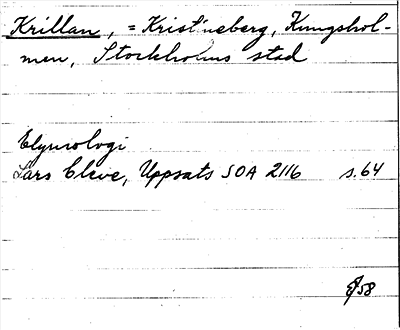 Krillan, = Kristineberg, Kungshol-
men, Stockholms stad
Etymologi
Lars Cleve, Uppsats SOA 2116 s.64
58